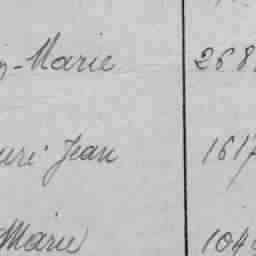 -Marie 268
Jean 1617
Marie 104